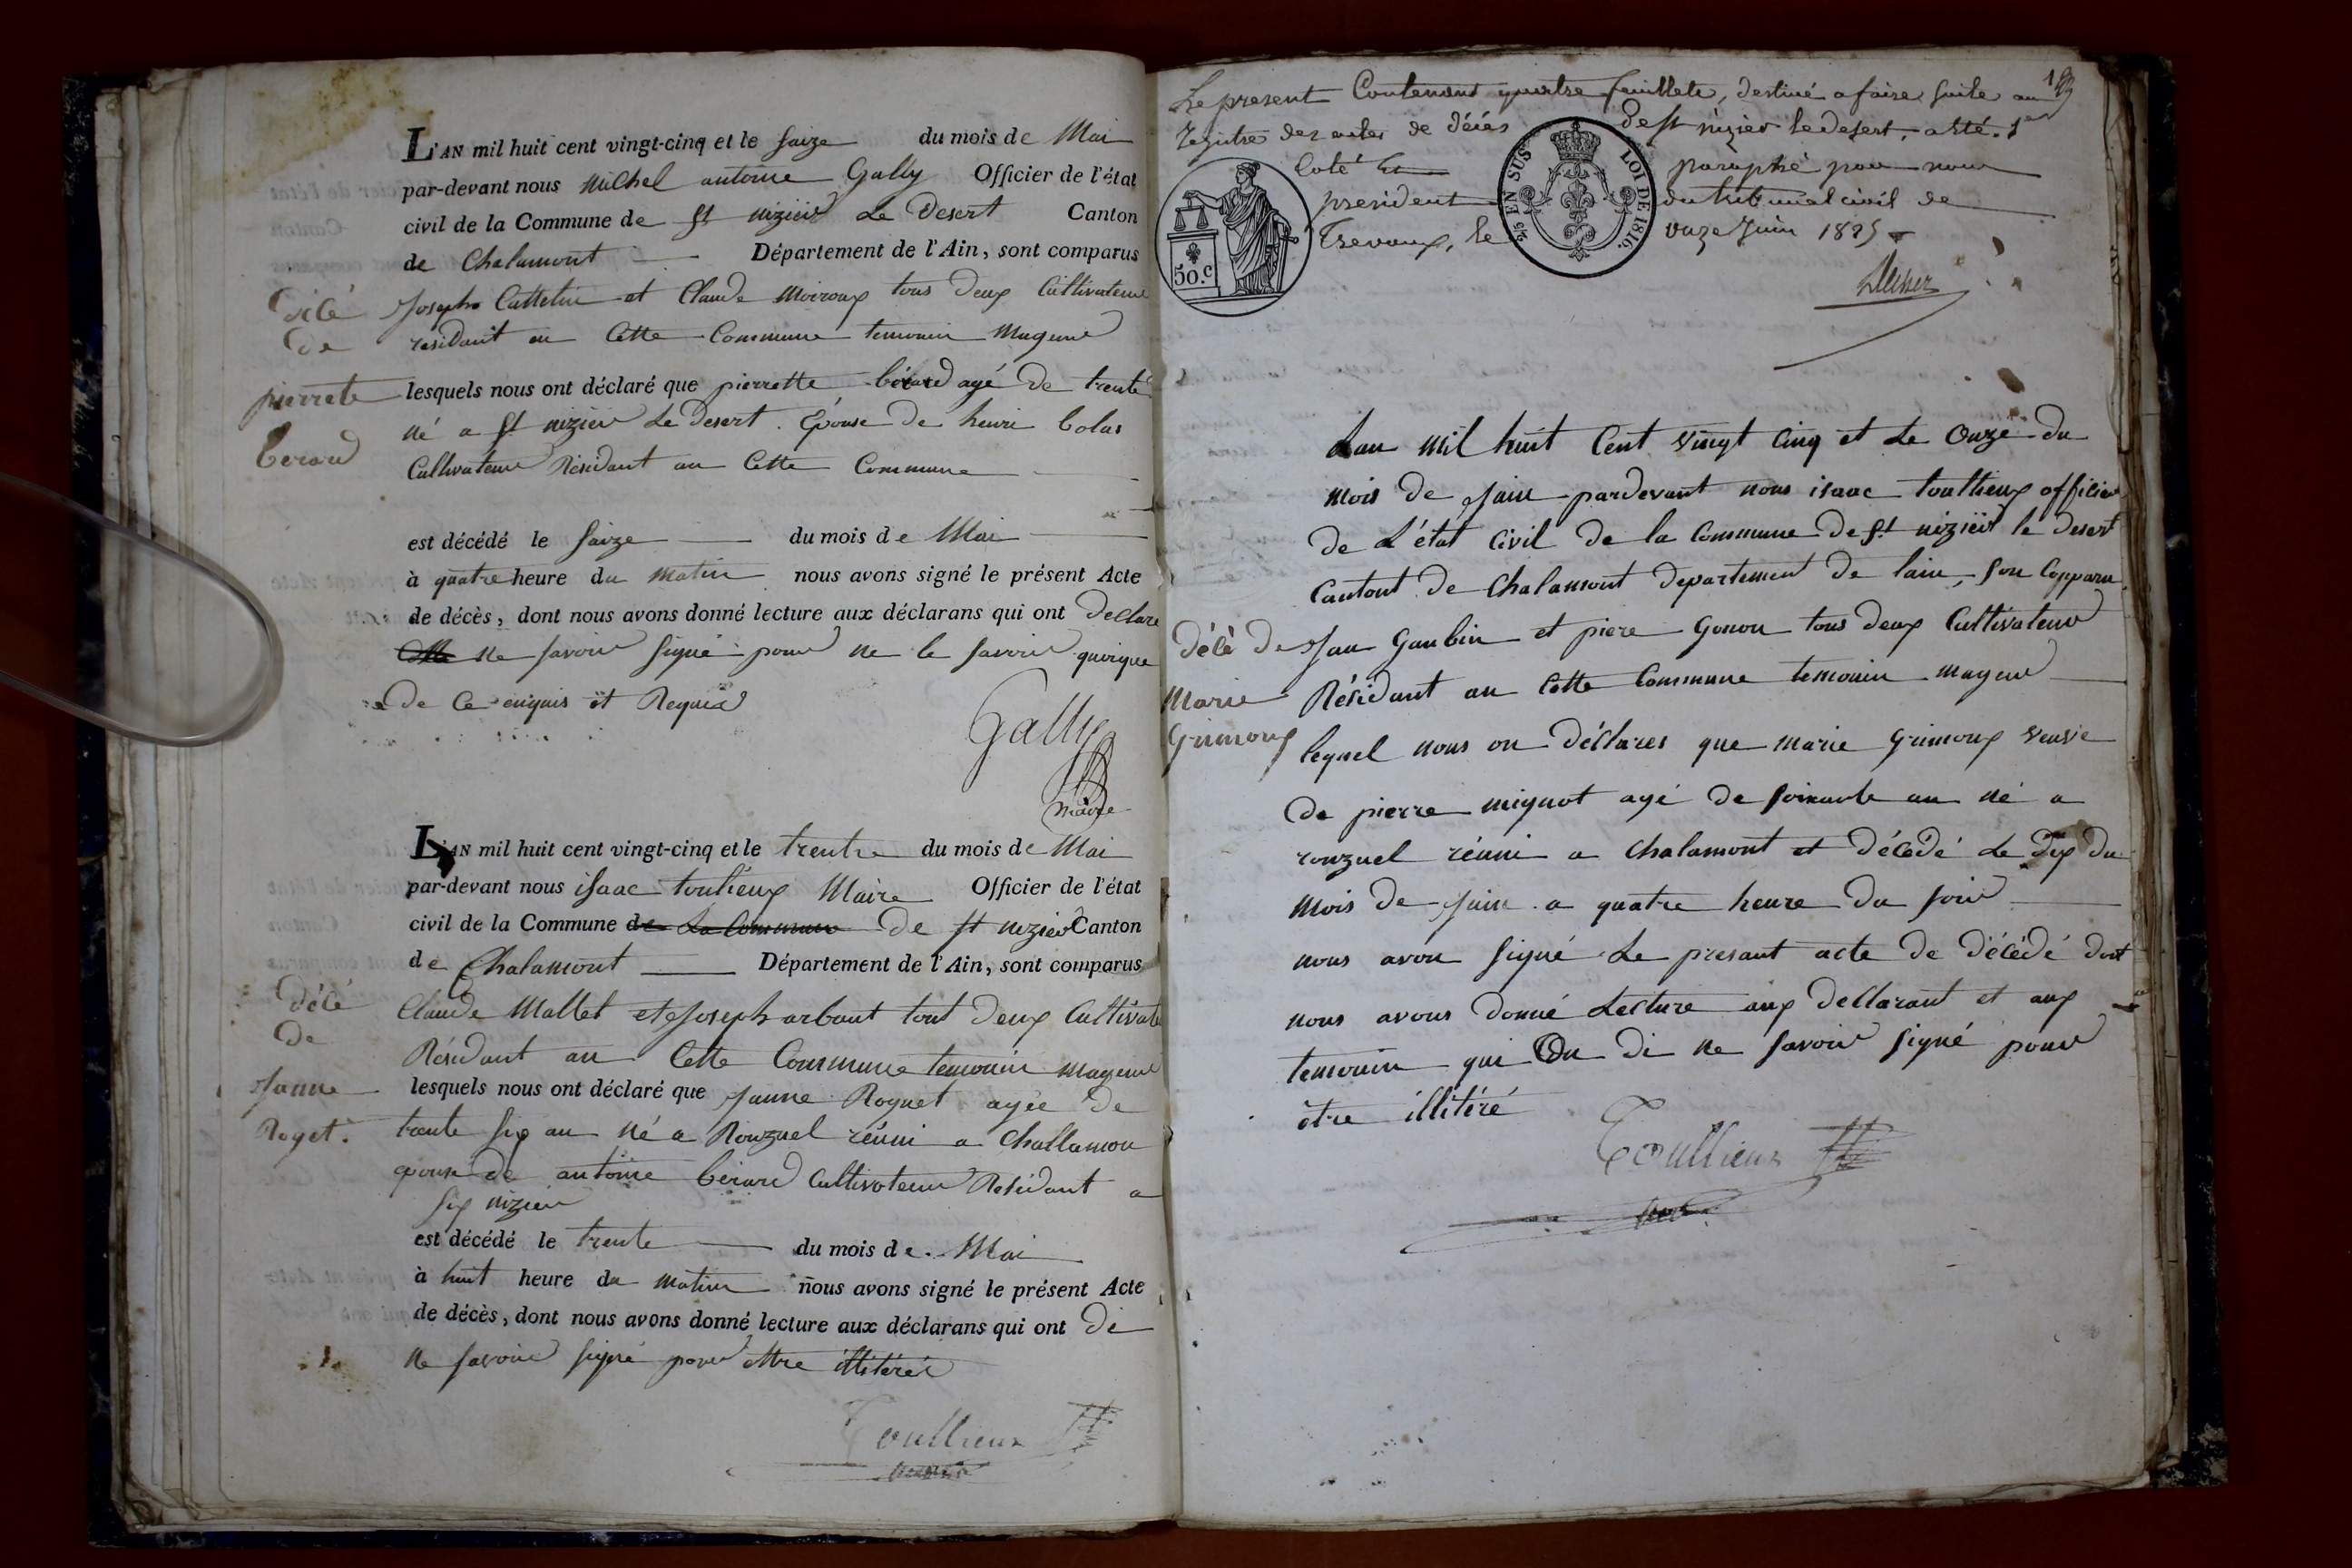 L'AN mil huit cent vingt-cinq et le saize du mois de Mai
par-devant nous Michel antoine Gally Officier de l'état
civil de la Commune de St nizier Le Desert Canton
de Chalamont Département de l'Ain, sont comparus
Joseph Cattelin et Claude Moiroux tous deux Cultivateur
residant en Cette Commune temouin Mageur
décé
de
pierrete
berard
lesquels nous ont déclaré que pierrette bérard agé de trente
né a St nizier Le Desert. Épouse de henri bolas
Cultivateur Résidant au Cette Commune
est décédé le saize du mois de Mai
à quatre heure du matin nous avons signé le présent Acte
de décès, dont nous avons donné lecture aux déclarans qui ont declare
ne savoir signé pour ne le savoir quoique
de Ce enquis et Requis
Gally
maire
L'AN mil huit cent vingt-cinq et le trente du mois de Mai
par-devant nous isaac toulieux Maire Officier de l'état
civil de la Commune de La Commune De St nizier Canton
de Chalamont Département de l'Ain, sont comparus
Claude Mallet et Joseph arbant tout deux Cultivate
Résidant au Cette Commune temouin mageur
décé
de
Janne
Roget.
lesquels nous ont déclaré que Janne Roguet agée de
trente six an né a Ronzuel réuni a Challamon
epouse de antoine bérard Cultivateur Residant a
six nizier
est décédé le trente du mois de Mai
à huit heure du matin nous avons signé le présent Acte
de décès, dont nous avons donné lecture aux déclarans qui ont di
ne savoir signé pour ettre illitéré
Toullieux
maire
Le present Contenant quatre feuillets, destiné a faire suite au
registre des actes de décés de St nizier le desert, a été
Coté et paraphé par nous
president du tribunal civil de
Trevoux, le onze Juin 1825
50.c
25 EN SUS LOI DE 1816.
Lan mil huit Cent vingt Cinq et Le Onze du
mois de Juin pardevant nous isaac toullieux officier
de L'état Civil de la Commune de St nizier le desert
Cantont de Chalamont departement de lain, son Copparu
Jan Gaubin et piere Gonou tous deux Cultivateur
Résidant au Cette Commune temouin mageur
décé de
Marie
Grimoux
lequel nous on déclares que marie grimoux veuve
de pierre mignot agé de soixante an né a
ronzuel réuni a Chalamont et décédé Le dix du
mois de Juin a quatre heure du soir
nous avon signé Le presant acte de décédé dont
nous avons donné Lecture aux declarant et aux
temouin qui On di ne savoir signé pour
être illitéré
Toullieux